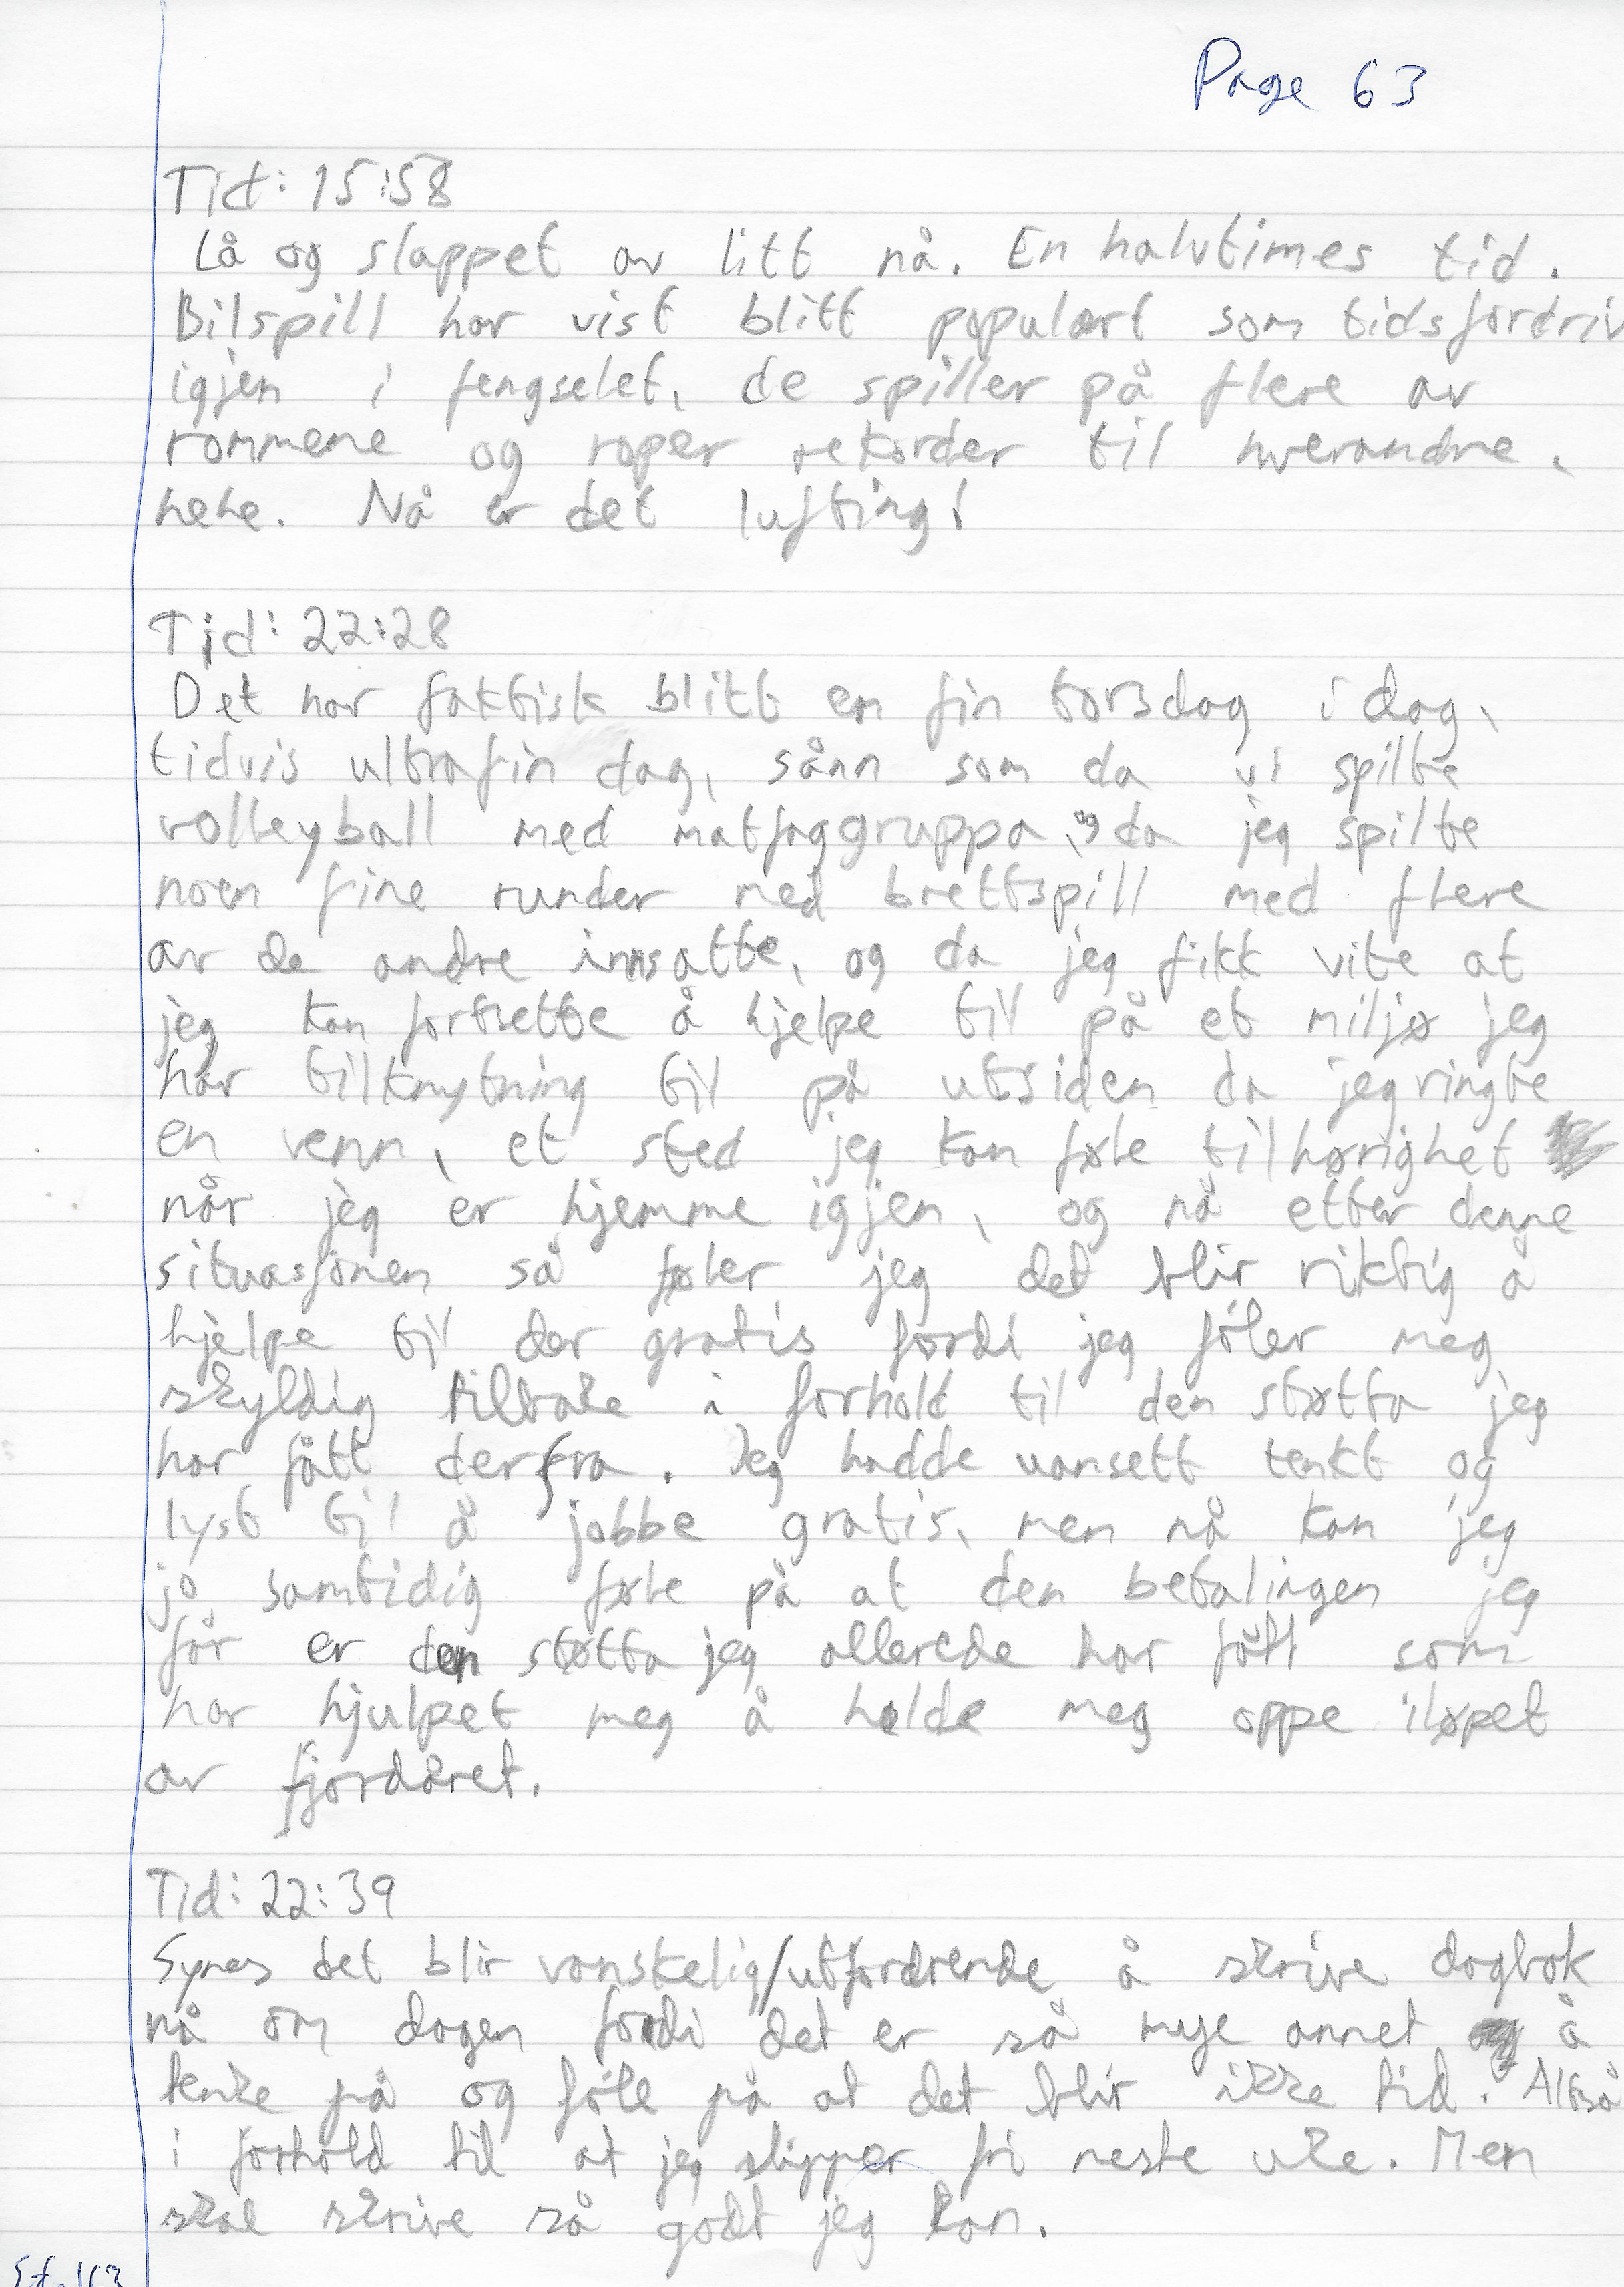 Page 63
Tid: 15:58
Lå og slappet av litt nå. En halvtimes tid.
Bilspill har vist blitt populært som tidsfordriv
igjen i fengselet, de spiller på flere av
rommene og roper rekorder til hverandre,
hehe. Nå er det lufting!
Tid: 22:28
Det har faktisk blitt en fin torsdag i dag,
tidvis ultrafin dag, sånn som da vi spilte
volleyball med matfaggruppa, og da jeg spilte
noen fine runder med brettspill med flere
av de andre innsatte, og da jeg fikk vite at
jeg kan fortsette å hjelpe til på et miljø jeg
har tilknytning til på utsiden da jeg ringte
en venn, et sted jeg kan føle tilhørighet
når jeg er hjemme igjen, og nå etter denne
situasjonen så føler jeg det blir riktig å
hjelpe til der gratis fordi jeg føler meg
skyldig tilbake i forhold til den støtta jeg
har fått derfra. Jeg hadde uansett tenkt og
lyst til å jobbe gratis, men nå kan jeg
jo samtidig føle på at den betalingen jeg
får er den støtta jeg allerede har fått som
har hjulpet meg å holde meg oppe iløpet
av fjordåret.
Tid: 22:39
Synes det blir vanskelig/utfordrende å skrive dagbok
nå om dagen fordi det er så mye annet å
tenke på og føle på at det blir ikke tid. Altså
i forhold til at jeg slipper fri neste uke. Men
skal skrive så godt jeg kan.